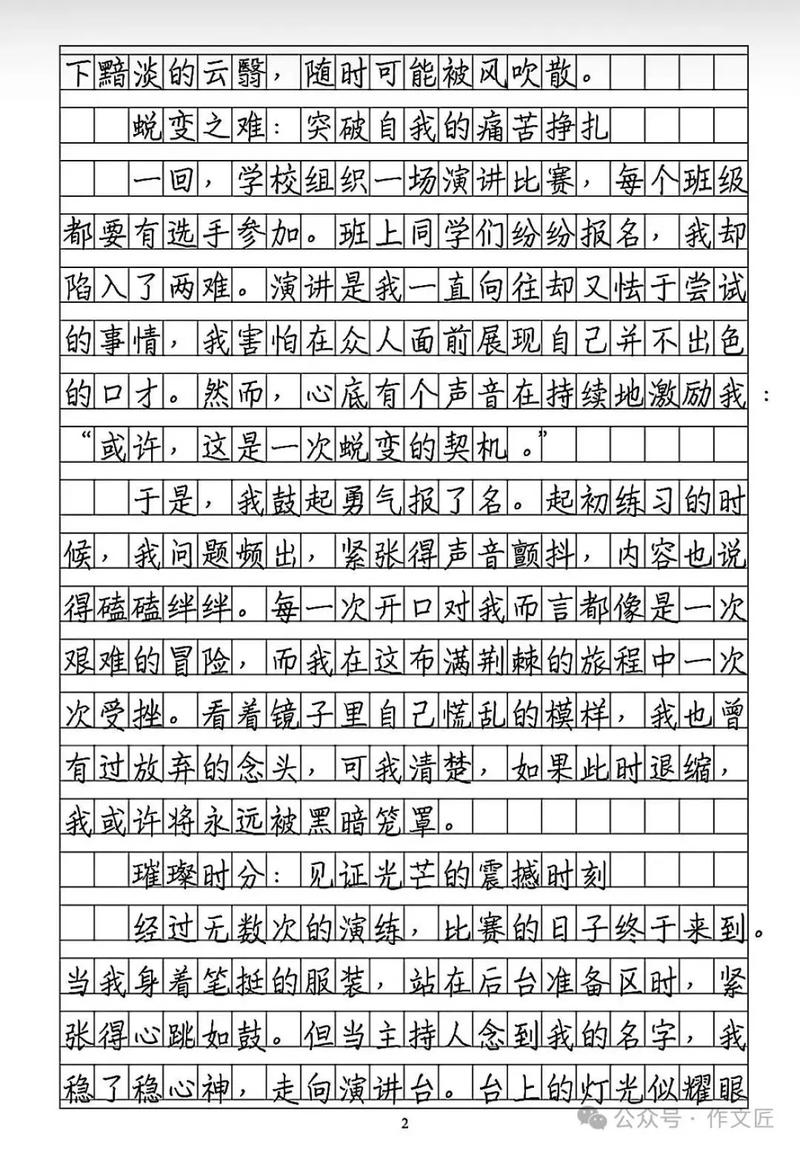 下黯淡的云翳，随时可能被风吹散。
蜕变之难：突破自我的痛苦挣扎
一回，学校组织一场演讲比赛，每个班级
都要有选手参加。班上同学们纷纷报名，我却
陷入了两难。演讲是我一直向往却又怯于尝试
的事情，我害怕在众人面前展现自己并不出色
的口才。然而，心底有个声音在持续地激励我：
“或许，这是一次蜕变的契机。”
于是，我鼓起勇气报了名。起初练习的时
候，我问题频出，紧张得声音颤抖，内容也说
得磕磕绊绊。每一次开口对我而言都像是一次
艰难的冒险，而我在这布满荆棘的旅程中一次
次受挫。看着镜子里自己慌乱的模样，我也曾
有过放弃的念头，可我清楚，如果此时退缩，
我或许将永远被黑暗笼罩。
璀璨时分：见证光芒的震撼时刻
经过无数次的演练，比赛的日子终于来到。
当我身着笔挺的服装，站在后台准备区时，紧
张得心跳如鼓。但当主持人念到我的名字，我
稳了稳心神，走向演讲台。台上的灯光似耀眼
2
公众号·作文匠